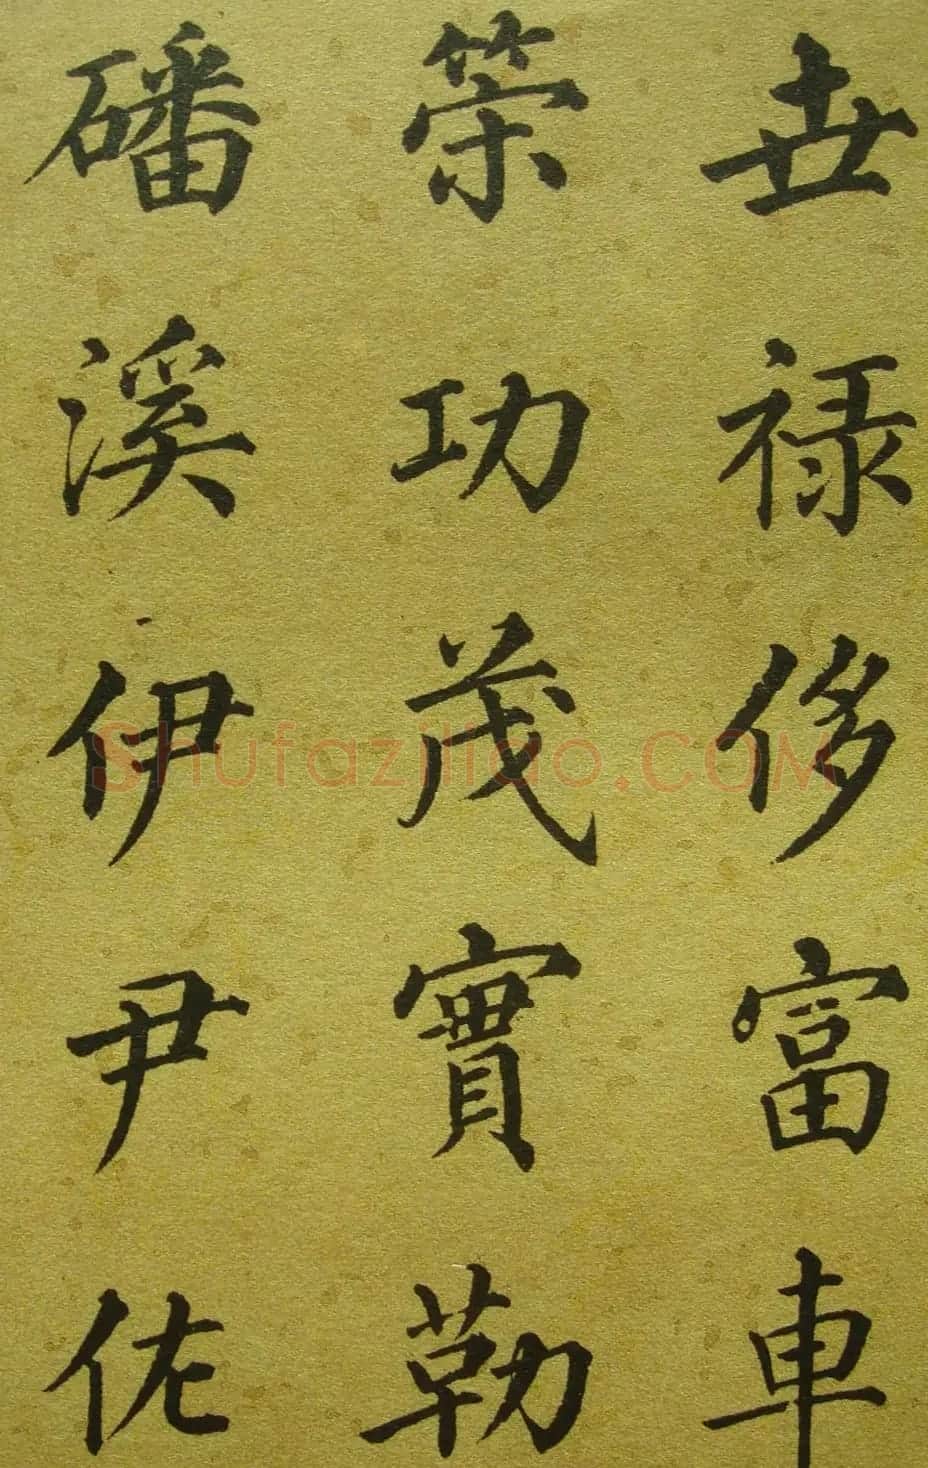 世禄侈富車
策功茂實勒
磻溪伊尹佐
Shufaziliao.COM